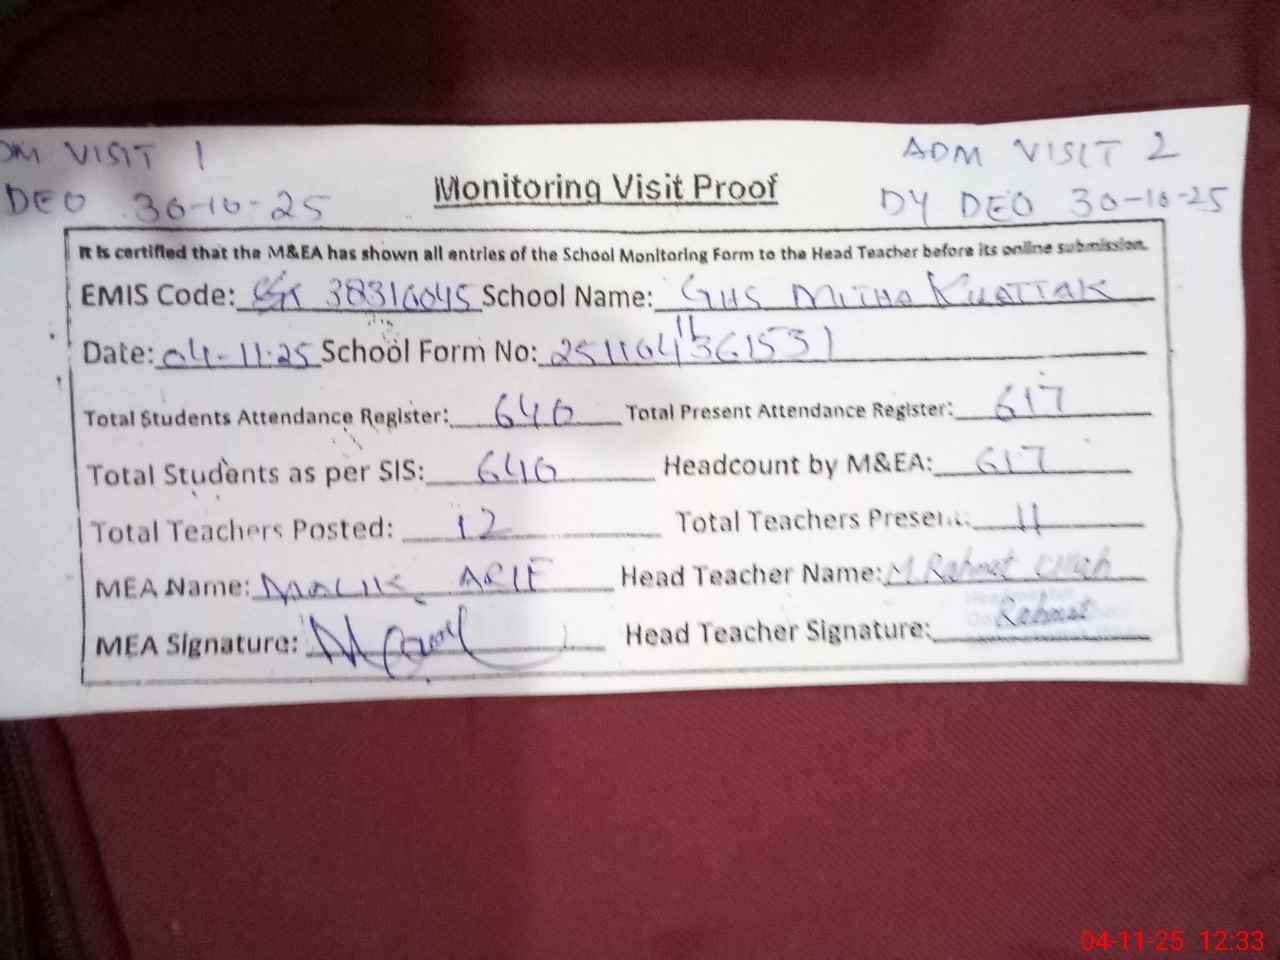 VISIT 1
ADM VISIT 2
DEO 30-10-25
DY DEO 30-10-25
Monitoring Visit Proof
It is certified that the M&EA has shown all entries of the School Monitoring Form to the Head Teacher before its online submission.
EMIS Code: 38310045 School Name: GHS MITHA KHATTAK
Date: 04-11-25 School Form No:
Total Students Attendance Register: 640 Total Present Attendance Register: 617
Total Students as per SIS: 640 Headcount by M&EA: 617
Total Teachers Posted: 12 Total Teachers Present: 11
MEA Name: MALIK ARIF Head Teacher Name: M. Rahmat Ullah
MEA Signature: Head Teacher Signature: Rahmat
04-11-25 12:33